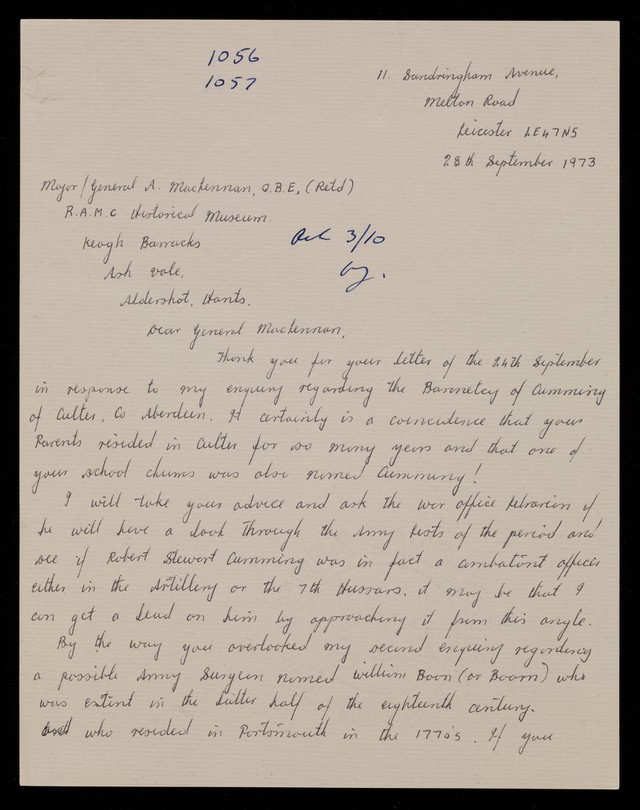 1056
1057
11. Sandringham Avenue,
Melton Road
Leicester LE4 7NS
28th September 1973
Major/General A. MacLennan, O.B.E, (Retd)
R.A.M.C Historical Museum.
Keogh Barracks
Ash Vale,
Aldershot, Hants.
3/10
Dear General MacLennan,
Thank you for your letter of the 24th September
in response to my enquiry regarding the Baronetcy of Cumming
of Culter, Co Aberdeen. It certainly is a coincidence that your
Parents resided in Culter for so many years and that one of
your school chums was also named Cumming!
I will take your advice and ask the war office librarian if
he will have a look through the Army Lists of the period and
see if Robert Stewart Cumming was in fact a combatant officer
either in the Artillery or the 7th Hussars, it may be that I
can get a lead on him by approaching it from this angle.
By the way you overlooked my second enquiry regarding
a possible Army Surgeon named William Boon (or Boorn) who
was extant in the latter half of the eighteenth century.
who resided in Portsmouth in the 1770's. If you